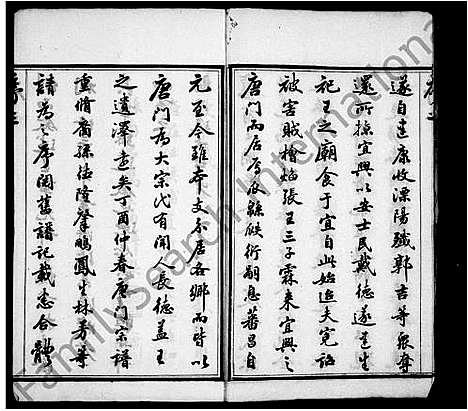 遂自建康收溧陽殱郭吉等眾奪
還所掠宜興以安士民戴德遂建生
祀王之廟食于宜自此始迨夫冤詒
被害賊檜焰張王三子霖來宜興之
唐門而居焉瓜緜飲衍嗣息蕃昌自
元至今雖本支分居各鄉而皆以
唐門為大宗代有聞人長德蓋王
之遺澤遠矣丁酉仲春唐門宗譜
重脩裔孫德隆肇鵬鳳生林芳等
請為之序閱舊譜記載悉合體
FamilySearch International